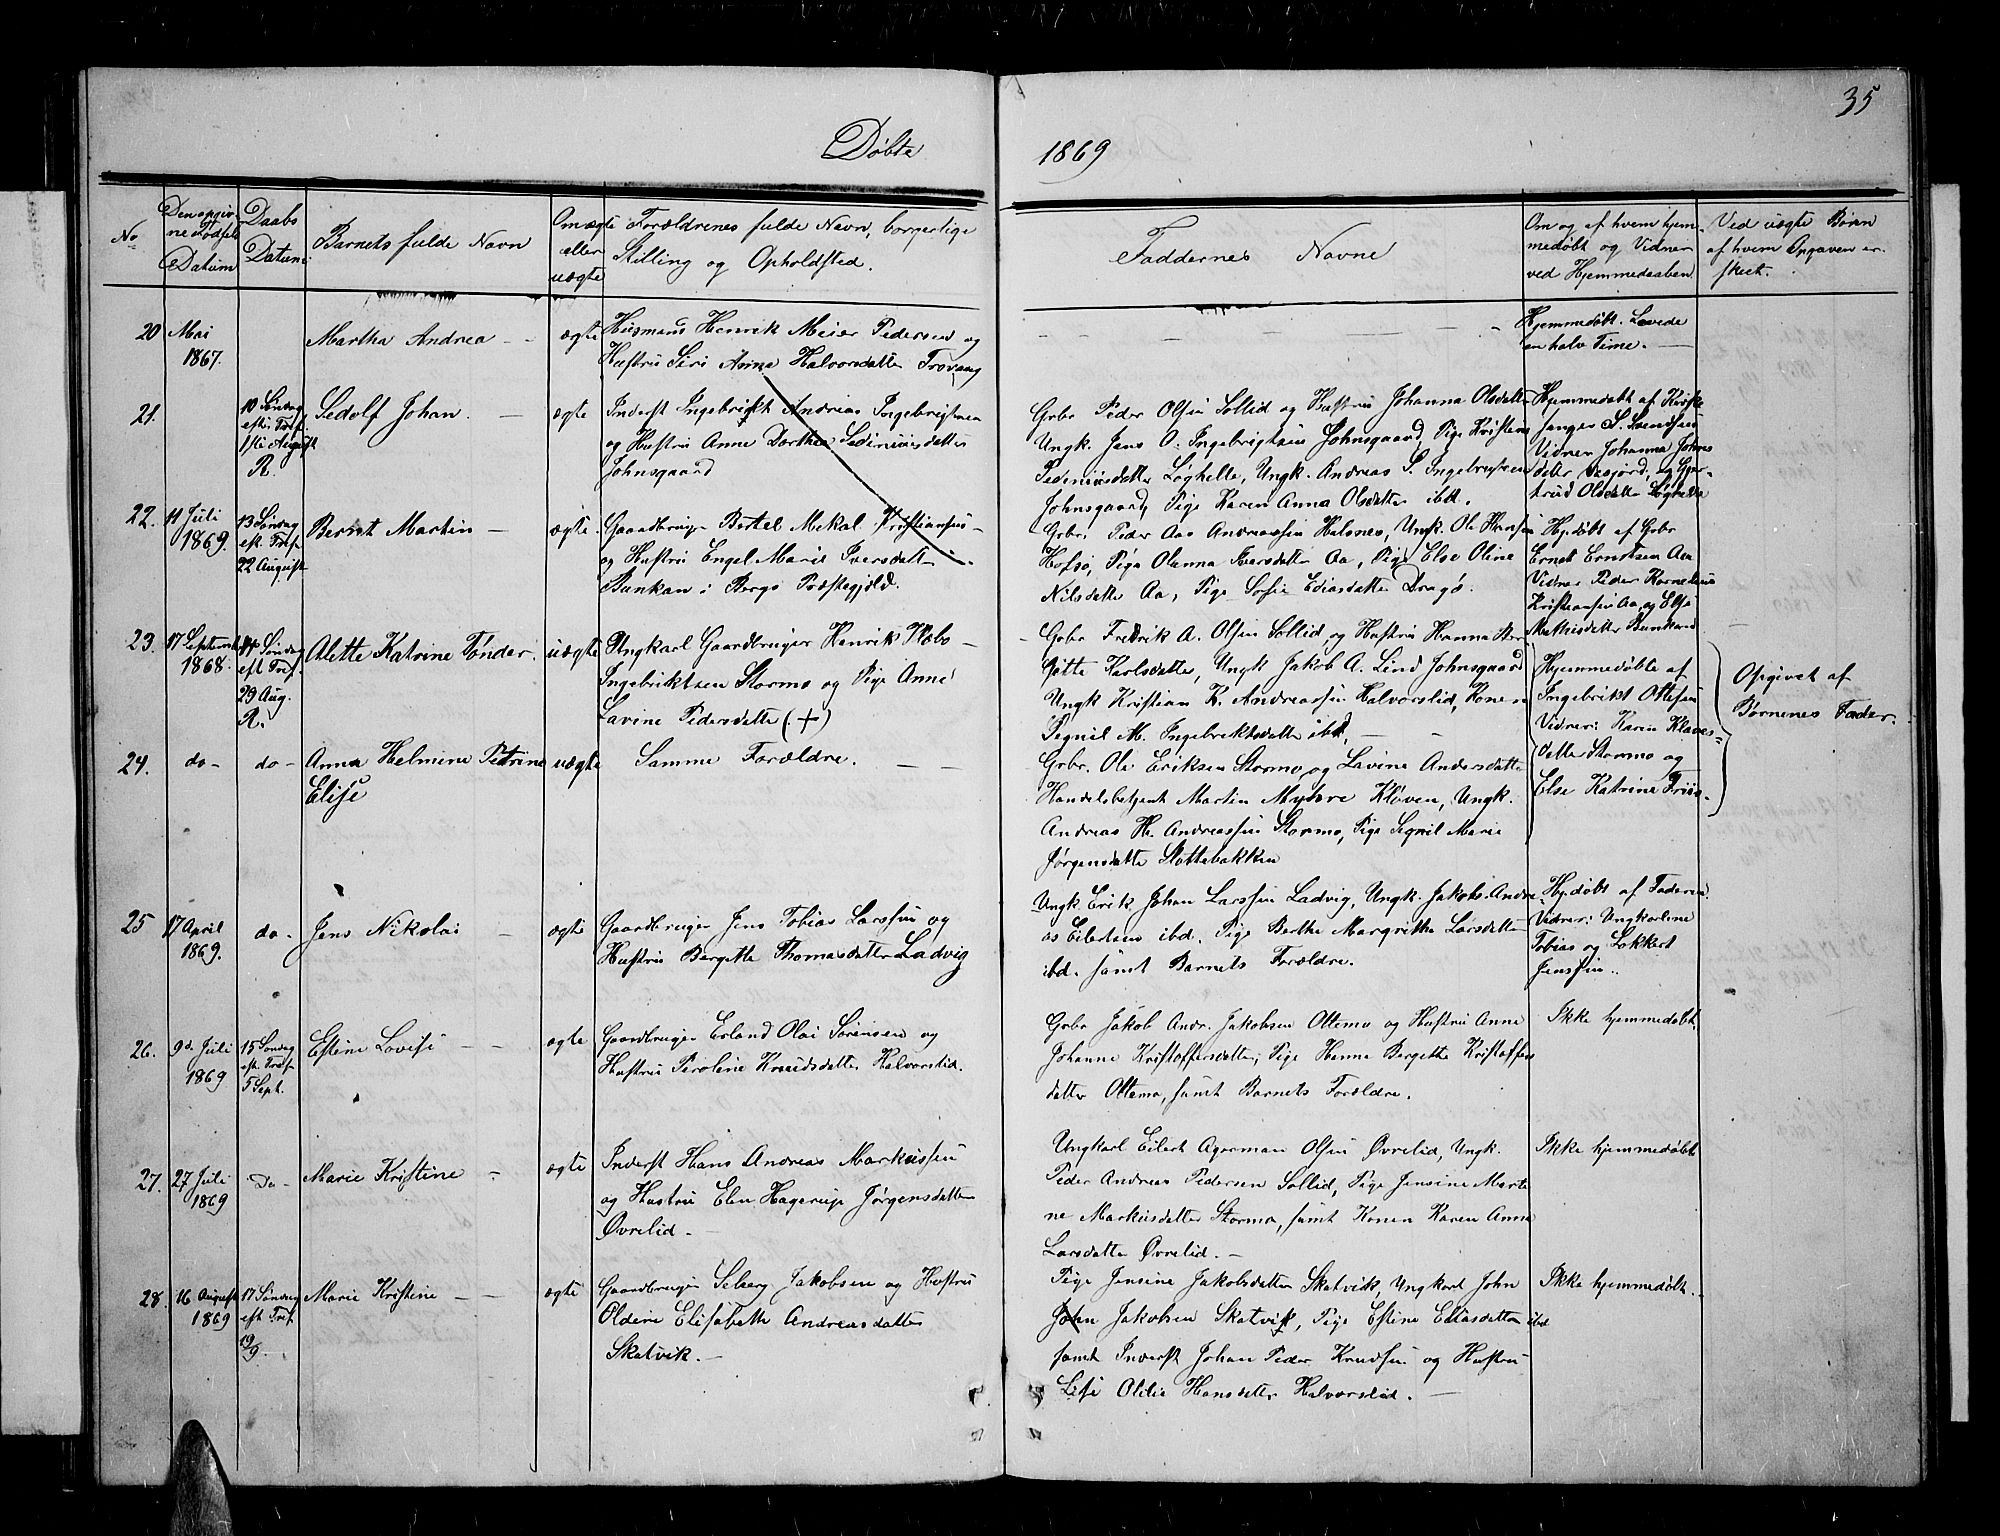 35
Døbte
1869
No
Den opgiv-
ne Fødsels
Datum
Daabs
Datum
Barnets fulde Navn
Om ægte
eller
uægte
Forældrenes fulde Navn, borgerlige
Stilling og Opholdsted.
Faddernes Navne
Om og af hvem hjem-
medøbt og Vidner
ved Hjemmedaaben
Ved uægte Børn
af hvem Opgaven er
skeet.
20
Mai
1867.
Martha Andrea
ægte
Husmand Henrik Meier Pedersen og
Hustru Siri Anna Halvorsdatter Trovaag
Hjemmedøbt. Levede
en halv Time.
21.
10 Søndag
eft. Tref.
1ste August
R.
Sedolf Johan
ægte
Inderst Ingebrigt Andreas Ingebrigtsen
og Hustru Anne Dorthea Sediniusdatter
Johnsgaard
Gbr Peder Olsen Sollid og Hustru Johanna Olsdatter
Ungk. Jens O. Ingebrigtsen Johnsgaard, Pige Kristine
Pediniusdatter Løghelle, Ungk. Andreas S. Ingebrigtsen
Johnsgaard, Pige Karen Anna Olsdatter ibd.
Hjemmedøbt af Kirke-
sanger S. Svendsen
Vidner Johanna Johns
datter og Gjer-
trud Olsdatter Løghelle
22.
11 Juli
1869.
13 Søndag
eft. Tref.
22 August
Bernt Martin
ægte.
Gaardbruger Bertel Mekal Kristiansen
og Hustru Engel Marie Iversdatter
Bunkan i Bergs Præstegjeld.
Gbr. Peder Aas Andreassen Halsnes, Ungk. Ole Hansen
Hofsø, Pige Olanna Iversdatter Aa, Pige Else Oline
Nilsdatter Aa, Pige Sofie Ediasdatter Dragø.
Hjdøbt af Gbr
Ernst Ernstsen Aa
Vidner Peder Kornelius
Kristiansen Aa og Else
Mathisdatter Bunkand
23.
17 Septemb
1868.
14 Søndag
eft Tref.
29 Aug.
R.
Alette Katrine Tønder.
uægte
Ungkarl Gaardbruger Henrik Ræbo
Ingebriktsen Stormo og Pige Anne
Lavine Pedersdatter (+)
Gbr Fredrik A. Olsen Sollid og Hustru Hanna Ber
gitte Karlsdatter, Ungk Jakob A. Lind Johnsgaard
Ungk Kristian K. Andreassen Halvorslid, Konen
Signil M. Ingebriktsdatter ibd,
Hjemmedøbte af
Ingebrikt Ottesen
Vidner: Karen Klaves-
datter Stormo og
Else Katrine Friis
Opgivet af
Børnenes Fader.
24.
do
do
Anna Helmine Petrine
Elise
uægte
Samme Forældre.
Gbr. Ole Eriksen Stormo og Lavine Andersdatter
Handelsbetjent Martin Myhre Kløven, Ungk.
Andreas H. Andreassen Stormo, Pige Signil Marie
Jørgensdatter Slottebakken
25
17 April
1869.
do
Jens Nikolai
ægte
Gaardbruger Jens Tobias Larssen og
Hustru Bergette Thomasdatter Ladvig
Ungk Erik Johan Larssen Ladvig, Ungk. Jakob Andre
as Eilertsen ibd. Pige Berthe Margrethe Larsdatter
ibd. samt Barnets Forældre.
Hjdøbt af Faderen
Vidner: Ungkarlene
Tobias og Lokkert
Jenssen.
26.
9de Juli
1869
15 Søndag
eft. Tref.
5 Sept.
Estine Lovise
ægte
Gaardbruger Erland Olai Sørensen og
Hustru Peroline Knudsdatter Halvorslid.
Gbr Jakob Andr. Jakobsen Oltemo og Hustru Anne
Johanne Kristoffersdatter, Pige Hanna Bergette Kristoffers
datter Oltemo, samt Barnets Forældre.
Ikke hjemmedøbt.
27.
27 Juli
1869
Do
Marie Kristine
ægte
Inderst Hans Andreas Markussen
og Hustru Elen Hagerup Jørgensdatter
Øvrelid.
Ungkarl Eilert Agerman Olsen Øvrelid, Ungk.
Peder Andreas Pedersen Sollid, Pige Jensine Marte
ne Markusdatter Stormo, samt Konen Karen Anna
Larsdatter Øvrelid.
Ikke hjemmedøbt
28.
16 August
1869
17 Søndag
eft Tref.
19/9.
Marie Kristine
ægte
Gaardbruger Seberg Jakobsen og Hustru
Oldine Elisabeth Andreasdatter
Skatvik.
Pige Jensine Jakobsdatter Skatvik, Ungkarl John
John Jakobsen Skatvik, Pige Estine Eliasdatter ibd
samt Inderst Johan Peder Knudsen og Hustru
Lise Oldie Hansdatter Halvorslid.
Ikke hjemmedøbt.